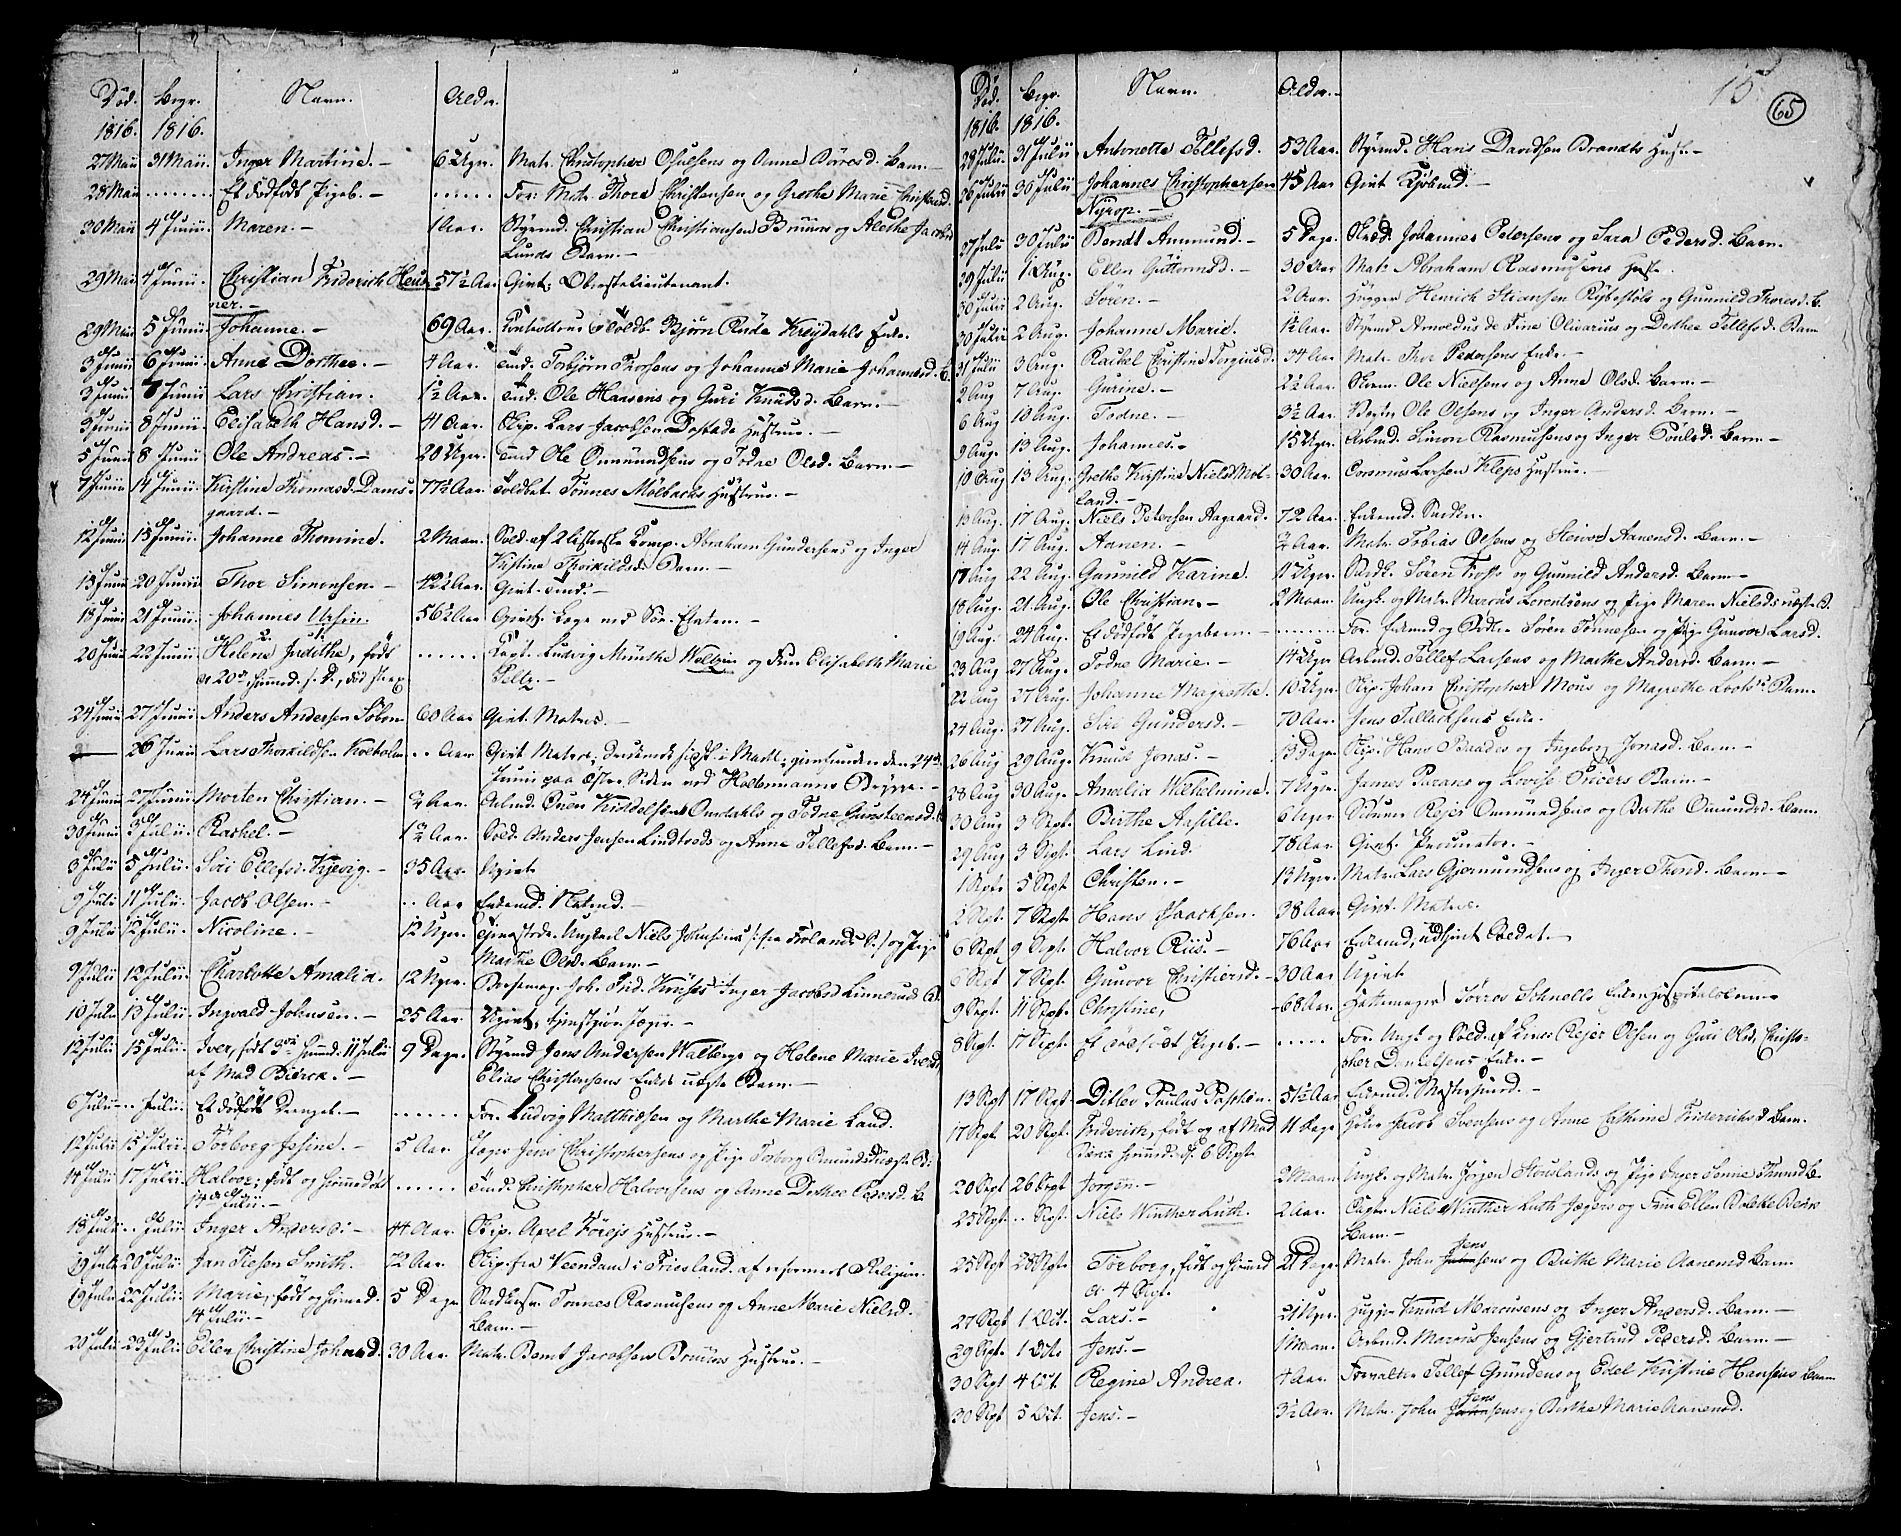 Død. Begr. Navn. Alder.
1816. 1816.
27 Maii 31 Maii. Inger Martine. - 6 Uger. Matr. Christopher Osulsens og Anne Børesd. Barn. -
28 Maii ...... Et dødfødt Pigeb. - ..... For: Matr. Thore Christensen og Grethe Marie Christensd.
30 Maii 4 Junii. Maren. - 1 Aar. Styrmd. Christian Christiansen Bruuns og Alethe Jacobsd.
Lunds Barn. -
29 Maii 4 Junii. Christian Friderich Heus- 57½ Aar Givt, Obristelieutenant.
ner. -
29 Maii 5 Junii. Johanne. - 69 Aar. Controlleur Bjørn Krøydahls Enke.
3 Junii 6 Junii. Anne Dorthee. - 4 Aar. Torbjørn Thorsens og Johanne Marie Johannesd. B.
3 Junii 7 Junii Lars Christian. 1½ Aar. Ole Hansens og Guri Knudsd. Barn. -
3 Junii 8 Junii. Elisabeth Hansd. - 41 Aar. Skip. Lars Jacobsen Hustrue. -
5 Junii 8 Junii. Ole Andreas. - 20 Uger. Ole Ommundsens og Todne Olsd. Barn. -
7 Junii 14 Junii. Kirstine Thomasd. Dams- 77½ Aar. Toldbet. Tønnes Mølbachs Hustrue. -
gaard. -
12 Junii 15 Junii. Johanne Thomine. 2 Maan. Sold. af 2 Listerske Comp. Abraham Gundersens og Inger
Kistine Thorkildsd. Barn. -
15 Junii 20 Junii Thor Simonsen. - 42½ Aar. Givt.
18 Junii 21 Junii. Johannes Ursin. 56½ Aar Givt. Læge ved Søe-Etaten. -
20 Junii 23 Junii. Helene Judithe, født ...... Capt. Ludvig Munthe Weltzin og Frue Elisabeth Marie
Peltz. -
24 Junii 27 Junii. Anders Andersen Søbon 60 Aar Givt. Matros. -
26 Junii Lars Thorkildsen .. Aar Givt Matros, gienfunden den 24de
Junii paa Østre Siden ved Holtermanns Brygge. -
24 Junii 27 Junii. Morten Christian. - ¾ Aar. Omdahls og Todne Gunsteensd.
30 Junii 3 Julii. Rachel. - 1½ Aar. Sold. Anders Jensen Lindtveds og Anne Tellefsd. Barn. -
3 Julii 5 Julii. Siri Ellefsd. Kjevig. - 35 Aar. Ugivt
9 Julii 11 Julii. Jacob Olsen. - .. Aar Enkemd. Matrosd. -
9 Julii 12 Julii. Nicoline. - 12 Uger. Ungkarl Niels Johnsens og Pige
Marthe Olsd. Barn. -
9 Julii 12 Julii. Charlotte Amalia. 12 Uger. Joh. Frid. Kruses Inger Jacobsd. Linnerud B.
10 Julii 13 Julii. Ingvald Johnsen. - 25 Aar. Ugivt, tjenstgiør. Jæger. -
12 Julii 15 Julii. Iver, født 3die hiemmd. 11 Julii 9 Dage. Styrmd. Jens Andersen Walberge og Helene Marie
af Mad. Bierck. - Elias Christensens Enkes uægte Barn. -
6 Julii .. Julii. Et dødfødt Drengeb. - ...... For. Ludvig Matthiesen og Marthe Marie Land.
12 Julii 15 Julii. Torborg Jesine. - 5 Aar. Jæger Jens Christophersens og Pige Torborg Omundsd. uægte B.
14 Julii 17 Julii. Halvor, født og hiemmedøbt ...... Christopher Halvorsens og Anne Dorthee Pedersd. B.
14de Julii. -
18 Julii .. Julii. Inger Andersd: - 44 Aar. Skip. Axel Hustrue. -
19 Julii 20 Julii. Jan Tieson Smith. - 72 Aar. Skip. fra Veendam i Friesland. af reformert Religion.
19 Julii 20 Julii. Marie, født og hiemmd. 5 Dage Tønnes Rasmusens og Anne Marie Nielsd.
14 Julii. - Barn. -
20 Julii 23 Julii. Ellen Christine Johnsd. 30 Aar. Matr. Bernt Jacobsens Bruuns Hustrue. -
15
65
Død. Begr. Navn. Alder. -
1816. 1816.
28 Julii. 31 Julii Antonette Tellefsd. 53 Aar. Styrmd. Hans Davidsen Brandts Hust. -
26 Julii 30 Julii Johannes Christophersen 45 Aar Givt Kjøbmd. -
Nyrop. -
27 Julii 30 Julii Berndt Ammund. - 5 Dage. Skræd. Johannes Petersens og Sara Pedersd. Barn.
29 Julii 1 Aug. Ellen Guttormsd. - 30 Aar Matr. Abraham Rasmusens Huste.
30 Julii 2 Aug. Søren. - 2 Aar. Hugger Henrich Stiansen Rybestøls og Gunnild Thoresd. B.
30 Julii 2 Aug. Johanne Marie. 1½ Aar. Styrmd Arnoldus de Fine Olivarius og Dorthee Tellefsd. Barn
31 Julii 3 Aug. Rachel Christine Torgiusd. 34 Aar. Matr. Thor Pedersens Enke. -
2 Aug 7 Aug. Gurine. - 2½ Aar. Ole Nielsens og Anne Olsd. Barn. -
6 Aug 10 Aug. Todne. - 3½ Aar. Ole Olsens og Inger Andersd. Barn. -
9 Aug. 13 Aug. Johannes. - 15 Uger. Arbmd. Simon Rasmusens og Inger Poulsd. Barn -
10 Aug 13 Aug. Grethe Kirstine Niels Mol- 30 Aar. Coremus Larsen Kleps Hustrue. -
land. -
13 Aug. 17 Aug. Niels Petersen Aagaard. 72 Aar. Enkemd. Snedker.
14 Aug. 17 Aug. Aanen. - ½ Aar. Matr. Tobias Olsens og Aanensd. Barn. -
17 Aug 22 Aug. Gunnild Karine. 11 Uger. Snedk. Søren og Gunnild Andersd. Barn -
18 Aug. 21 Aug. Ole Christian. - 2 Maan. Ungk. og Matr. Marcus Lorentsens og Pige Maren Nielsds. uægte B.
19 Aug. 24 Aug. Et dødfødt Pigebarn. - ...... For. Søren Tønnesen og Pige Gunvor Larsd.
23 Aug 27 Aug. Todne Marie. - 14 Uger Arbmd. Tellef Larsens og Marthe Andersd. Barn. -
22 Aug 27 Aug. Johanne Magrethe. 10 Uger. Skip. Johan Christopher Mous og Magrethe Loots Barn.
24 Aug. 27 Aug. Siri Gundersd. - 70 Aar. Jens Tallachsens Enke.
26 Aug 29 Aug. Knud Jonas. - 13 Dage. Skip. Hans Baades og Ingeborg Jonasd. Barn. -
28 Aug 30 Aug. Amalia Wilhelmine. 7 Uger. James Parans og Lovise Pricers Barn. -
30 Aug 3 Sept. Birthe Aasille. 6 Uger Rejer Ommundsens og Birthe Omundsd. Barn.
29 Aug 3 Sept. Lars Lind. 78 Aar. Givt. Procurator. -
1 Sept. 5 Sept Christen. - 13 Uger. Matr. Lars Gjermundsens og Inger Thond. Barn. -
2 Sept. 7 Sept. Hans Isaachsen. 38 Aar Givt. Matros.
6 Sept. 9 Sept. Halvor Riis. - 76 Aar Enkemd, udtjent Soldat. -
6 Sept 7 Sept. Gunvor Christiersd. - 30 Aar Ugivt
9 Sept. 11 Sept. Christine, - 68 Aar. Hattemager Schnells Enke, Hospitalslem
8 Sept. 17 Sept. Et dødfødt Pigeb. - ..... For. Ungk. og Sold. Rejer Olsen og Guri Olsd., Christo-
pher Danielsens Enke. -
13 Sept 17 Sept Ditlev Paulus 51½ Aar Enkemd.
17 Sept. 20 Sept. Friderich, født og af Mad 11 Dage Jacob Svensens og Anne Cathrine Friderichsd. Barn.
Bierck hiemmd. d. 6 Sept
20 Sept 26 Sept Jørgen. - 2 Maan. Ungk. og Matr. Jørgen Stoulands og Pige Inger Senne B.
25 Sept. .. Sept. Niels Winther Luth. 2 Aar. Niels Winther Luth Jægers og Frue Ellen Bolette
Barn. -
25 Sept 28 Sept. Torborg, født og hiemd 21 Dage. Matr. John Jens sens og Birthe Marie Aanensd. Barn.
d. 4 Sept.
27 Sept 1 Oct. Lars. - 21 Uger. Hugger Knud Marcusens og Inger Andersd. Barn. -
29 Sept. 1 Oct. Jens. - 1 Maan. Arbmd. Marcus Jensens og Gjertrud Pedersd. Barn. -
30 Sept 4 Oct. Regine Andrea. 4 Aar. Forvalter Tellef Grundens og Edel Kirstine Hansens Barn
30 Sept. 5 Oct. Jens. - 3½ Aar. Matr. John Jens sens og Birthe Marie Aanensd.